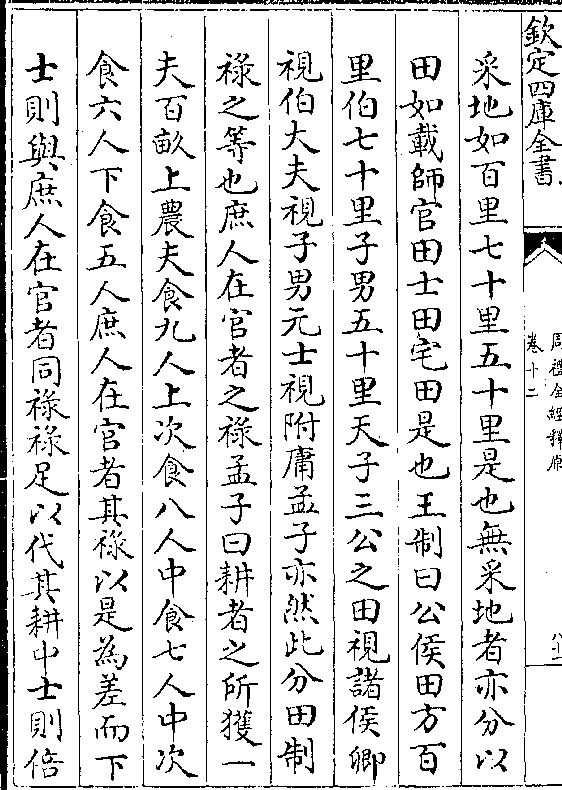 欽定四庫全書
周禮全經釋原
卷十二
采地如百里七十里五十里是也無采地者亦分以
田如載師官田士田宅田是也王制曰公侯田方百
里伯七十里子男五十里天子三公之田視諸侯卿
視伯大夫視子男元士視附庸孟子亦然此分田制
祿之等也庶人在官者之祿孟子曰耕者之所獲一
夫百畝上農夫食九人上次食八人中食七人中次
食六人下食五人庶人在官者其祿以是為差而下
士則與庶人在官者同祿祿足以代其耕中士則倍